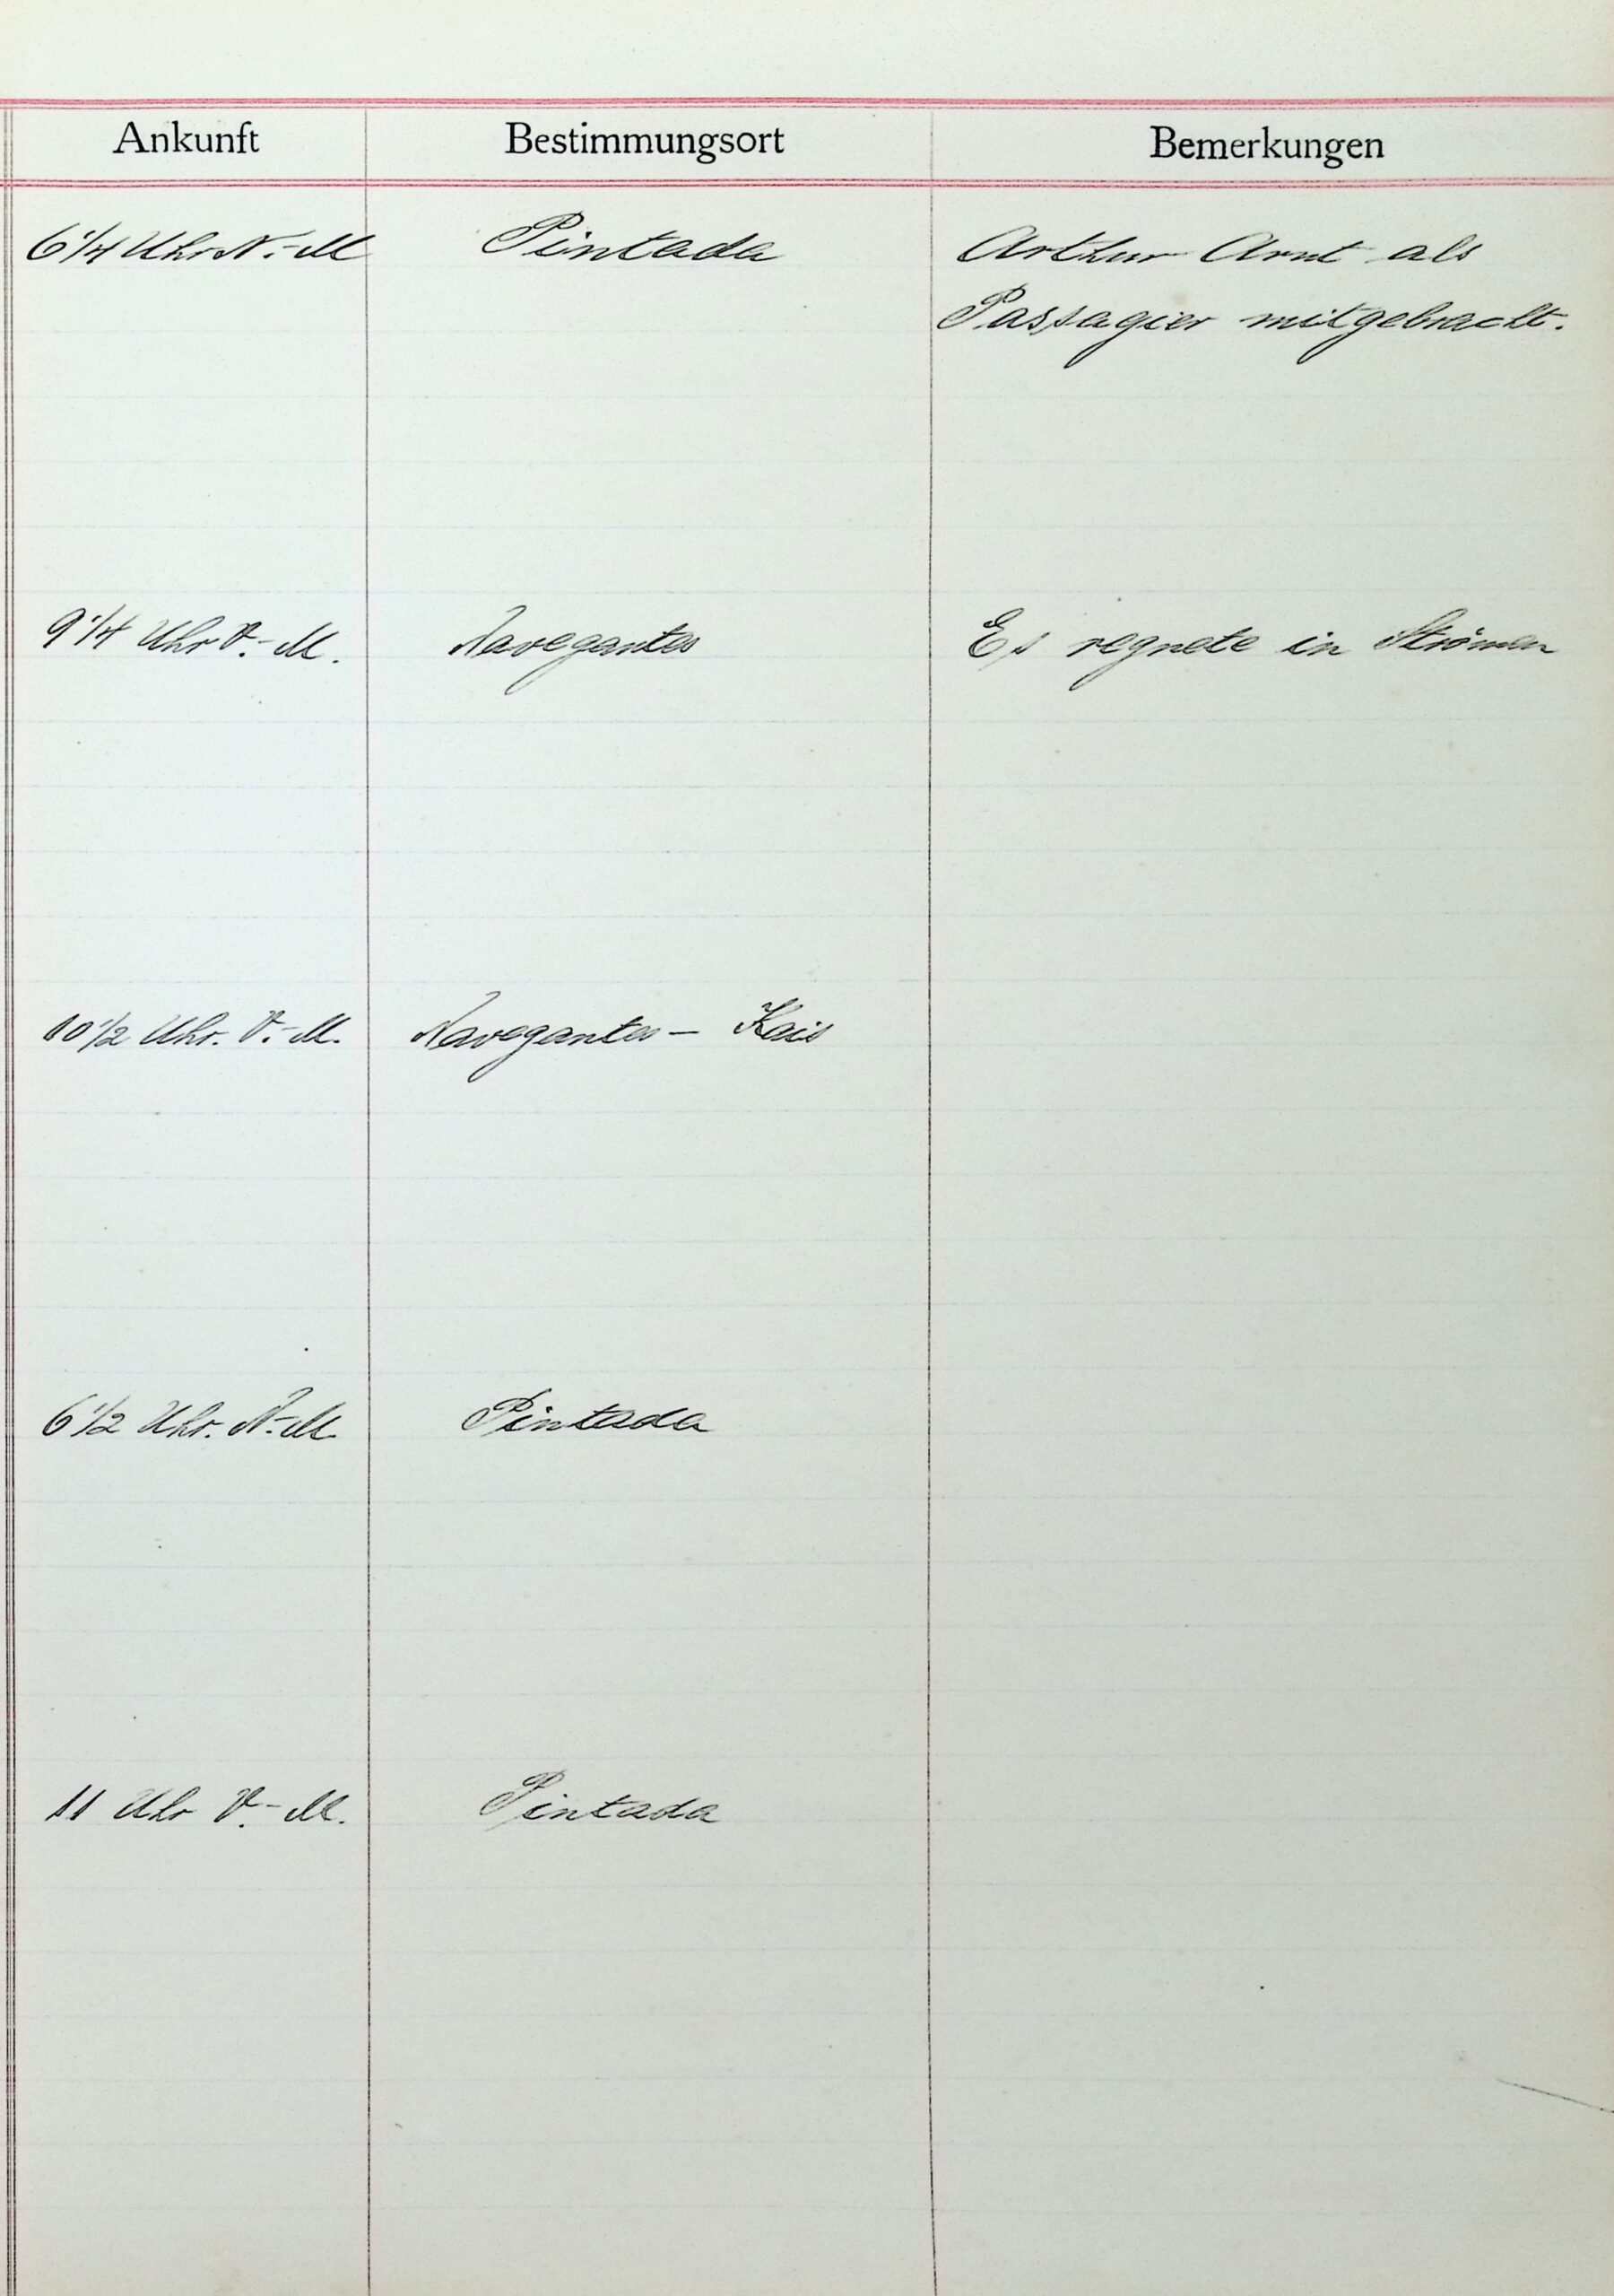 Ankunft Bestimmungsort Bemerkungen
6 1/4 Uhr N.-M Pintada Arthur Arnt als
Passagier mitgebracht.
9 1/4 Uhr V.-M. Navegantes Es regnete in Strömen
10 1/2 Uhr. V.-M. Navegantes - Kais
6 1/2 Uhr. N.-M. Pintada
11 Uhr V.-M. Pintada